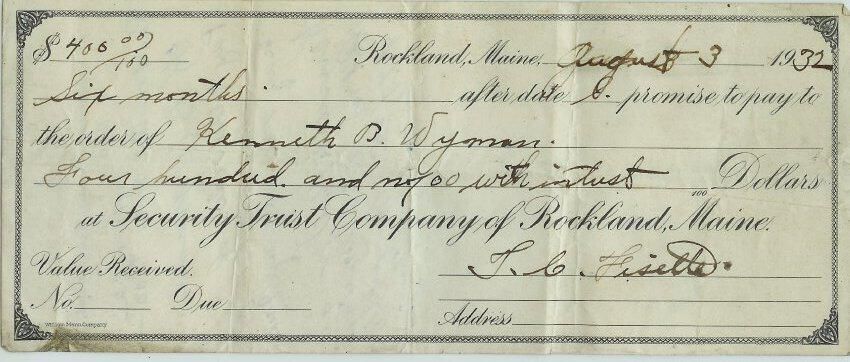 $ 400 00/100 Rockland, Maine, August 3 1932
Six months after date I promise to pay to
the order of Kenneth B. Wyman.
Four hundred and no/00 with intrest 100 Dollars
at Security Trust Company of Rockland, Maine.
Value Received. T. C. Fisette.
No. Due
Address
William Mann Company